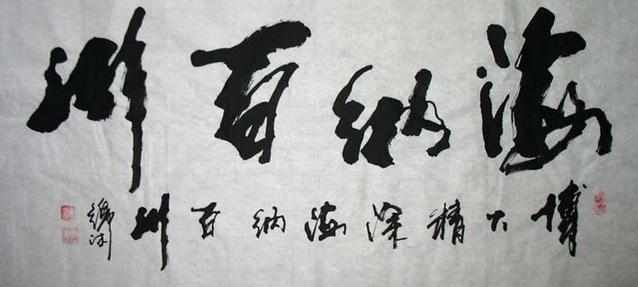 海纳百川
博大精深海纳百川